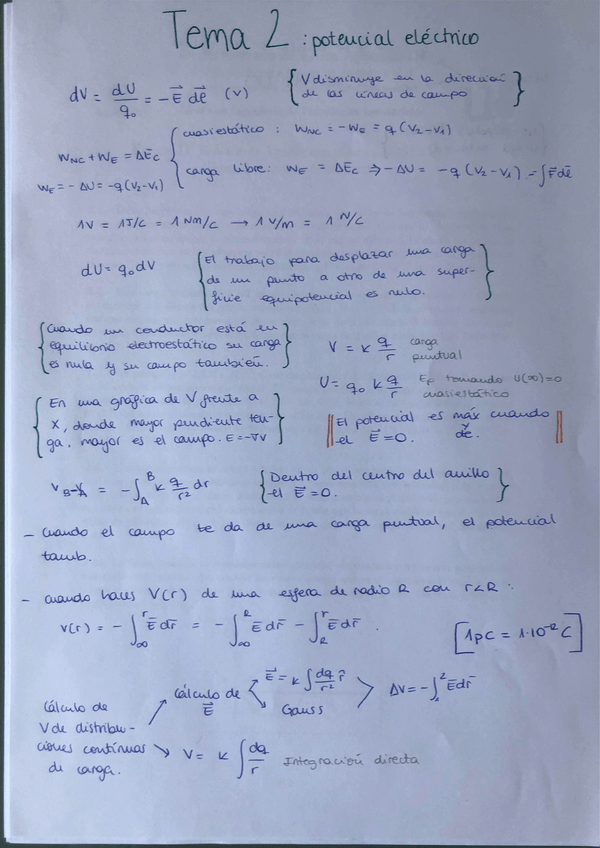 Tema 2 : potencial eléctrico
dV = dU/q₀ = - E⃗ dl⃗ (V)
{ V disminuye en la dirección
de las líneas de campo }
W_NC + W_E = ΔE_C
W_E = - ΔU = -q (V₂-V₁)
{ cuasiestático : W_NC = - W_E = q (V₂-V₁)
carga libre: W_E = ΔE_C ⇒ - ΔU = -q (V₂-V₁) - ∫F⃗dl⃗
1V = 1J/C = 1 Nm/C → 1 V/m = 1 N/C
dU = q₀ dV
{ El trabajo para desplazar una carga
de un punto a otro de una super-
ficie equipotencial es nulo. }
{ Cuando un conductor está en
equilibrio electroestático su carga
es nula y su campo también. }
V = k q/r carga
puntual
U = q₀ k q/r Ep tomando U(∞)=0
cuasiestático
{ En una gráfica de V frente a
x, donde mayor pendiente ten-
ga, mayor es el campo. E = -∇V }
|| El potencial es máx cuando
el E⃗ = 0. de. ||
V_B-V_A = - ∫_A^B k q/r² dr
{ Dentro del centro del anillo
el E⃗ = 0. }
- Cuando el campo te da de una carga puntual, el potencial
tamb.
- Cuando haces V(r) de una esfera de radio R con r<R :
V(r) = - ∫_∞^r E⃗ dr⃗ = - ∫_∞^R E⃗ dr⃗ - ∫_R^r E⃗ dr⃗ .
[ 1pC = 1·10⁻¹² C ]
Cálculo de
V de distribu-
ciones contínuas
de carga.
↗ Cálculo de
E⃗
↗ E⃗ = k ∫ dq/r² r̂
↘ Gauss
> ΔV = - ∫₁² E⃗ dr⃗
↘ V = k ∫ dq/r Integración directa